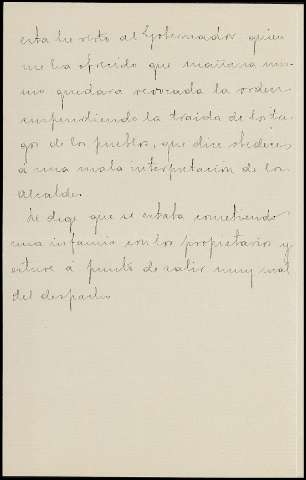 esta he visto al Gobernador quien
me ha ofrecido que mañana mis-
mo quedará revocada la orden
suspendiendo la traida de los tri-
gos de los pueblos, que dice obedece
á una mala interpretación de los
Alcaldes.
Le dige que se estaba cometiendo
una infamia con los propietarios y
estuve á punto de salir muy mal
del despacho